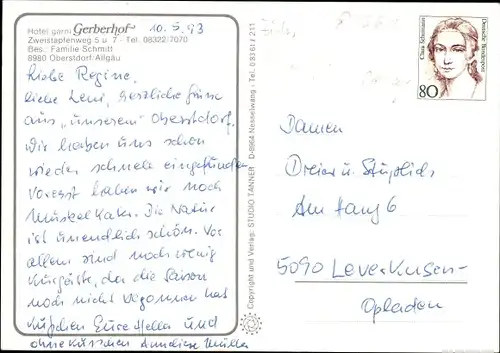 Hotel garni Gerberhof 10.5.93
Zweistapfenweg 5 u. 7 - Tel. 08322/7070
Bes. Familie Schmitt
8980 Oberstdorf/Allgäu
Liebe Regine,
liebe Leni, herzliche Grüße
aus "unserem" Oberstdorf.
Wir haben uns schon
wieder schnell eingefunden.
Vorerst haben wir noch
Muskelkater. Die Natur
ist unendlich schön. Vor
allem sind noch wenig
Kurgäste, da die Saison
noch nicht begonnen hat
Küßchen Eure Hella und
ohne Küsschen Anneliese Müller
Copyright und Verlag: STUDIO TANNER · D-8964 Nesselwang · Tel. 08361/211
Clara Schumann
Deutsche Bundespost
80
Damen
Dreier u.
Am Hang 6
5090 Leverkusen-
Opladen